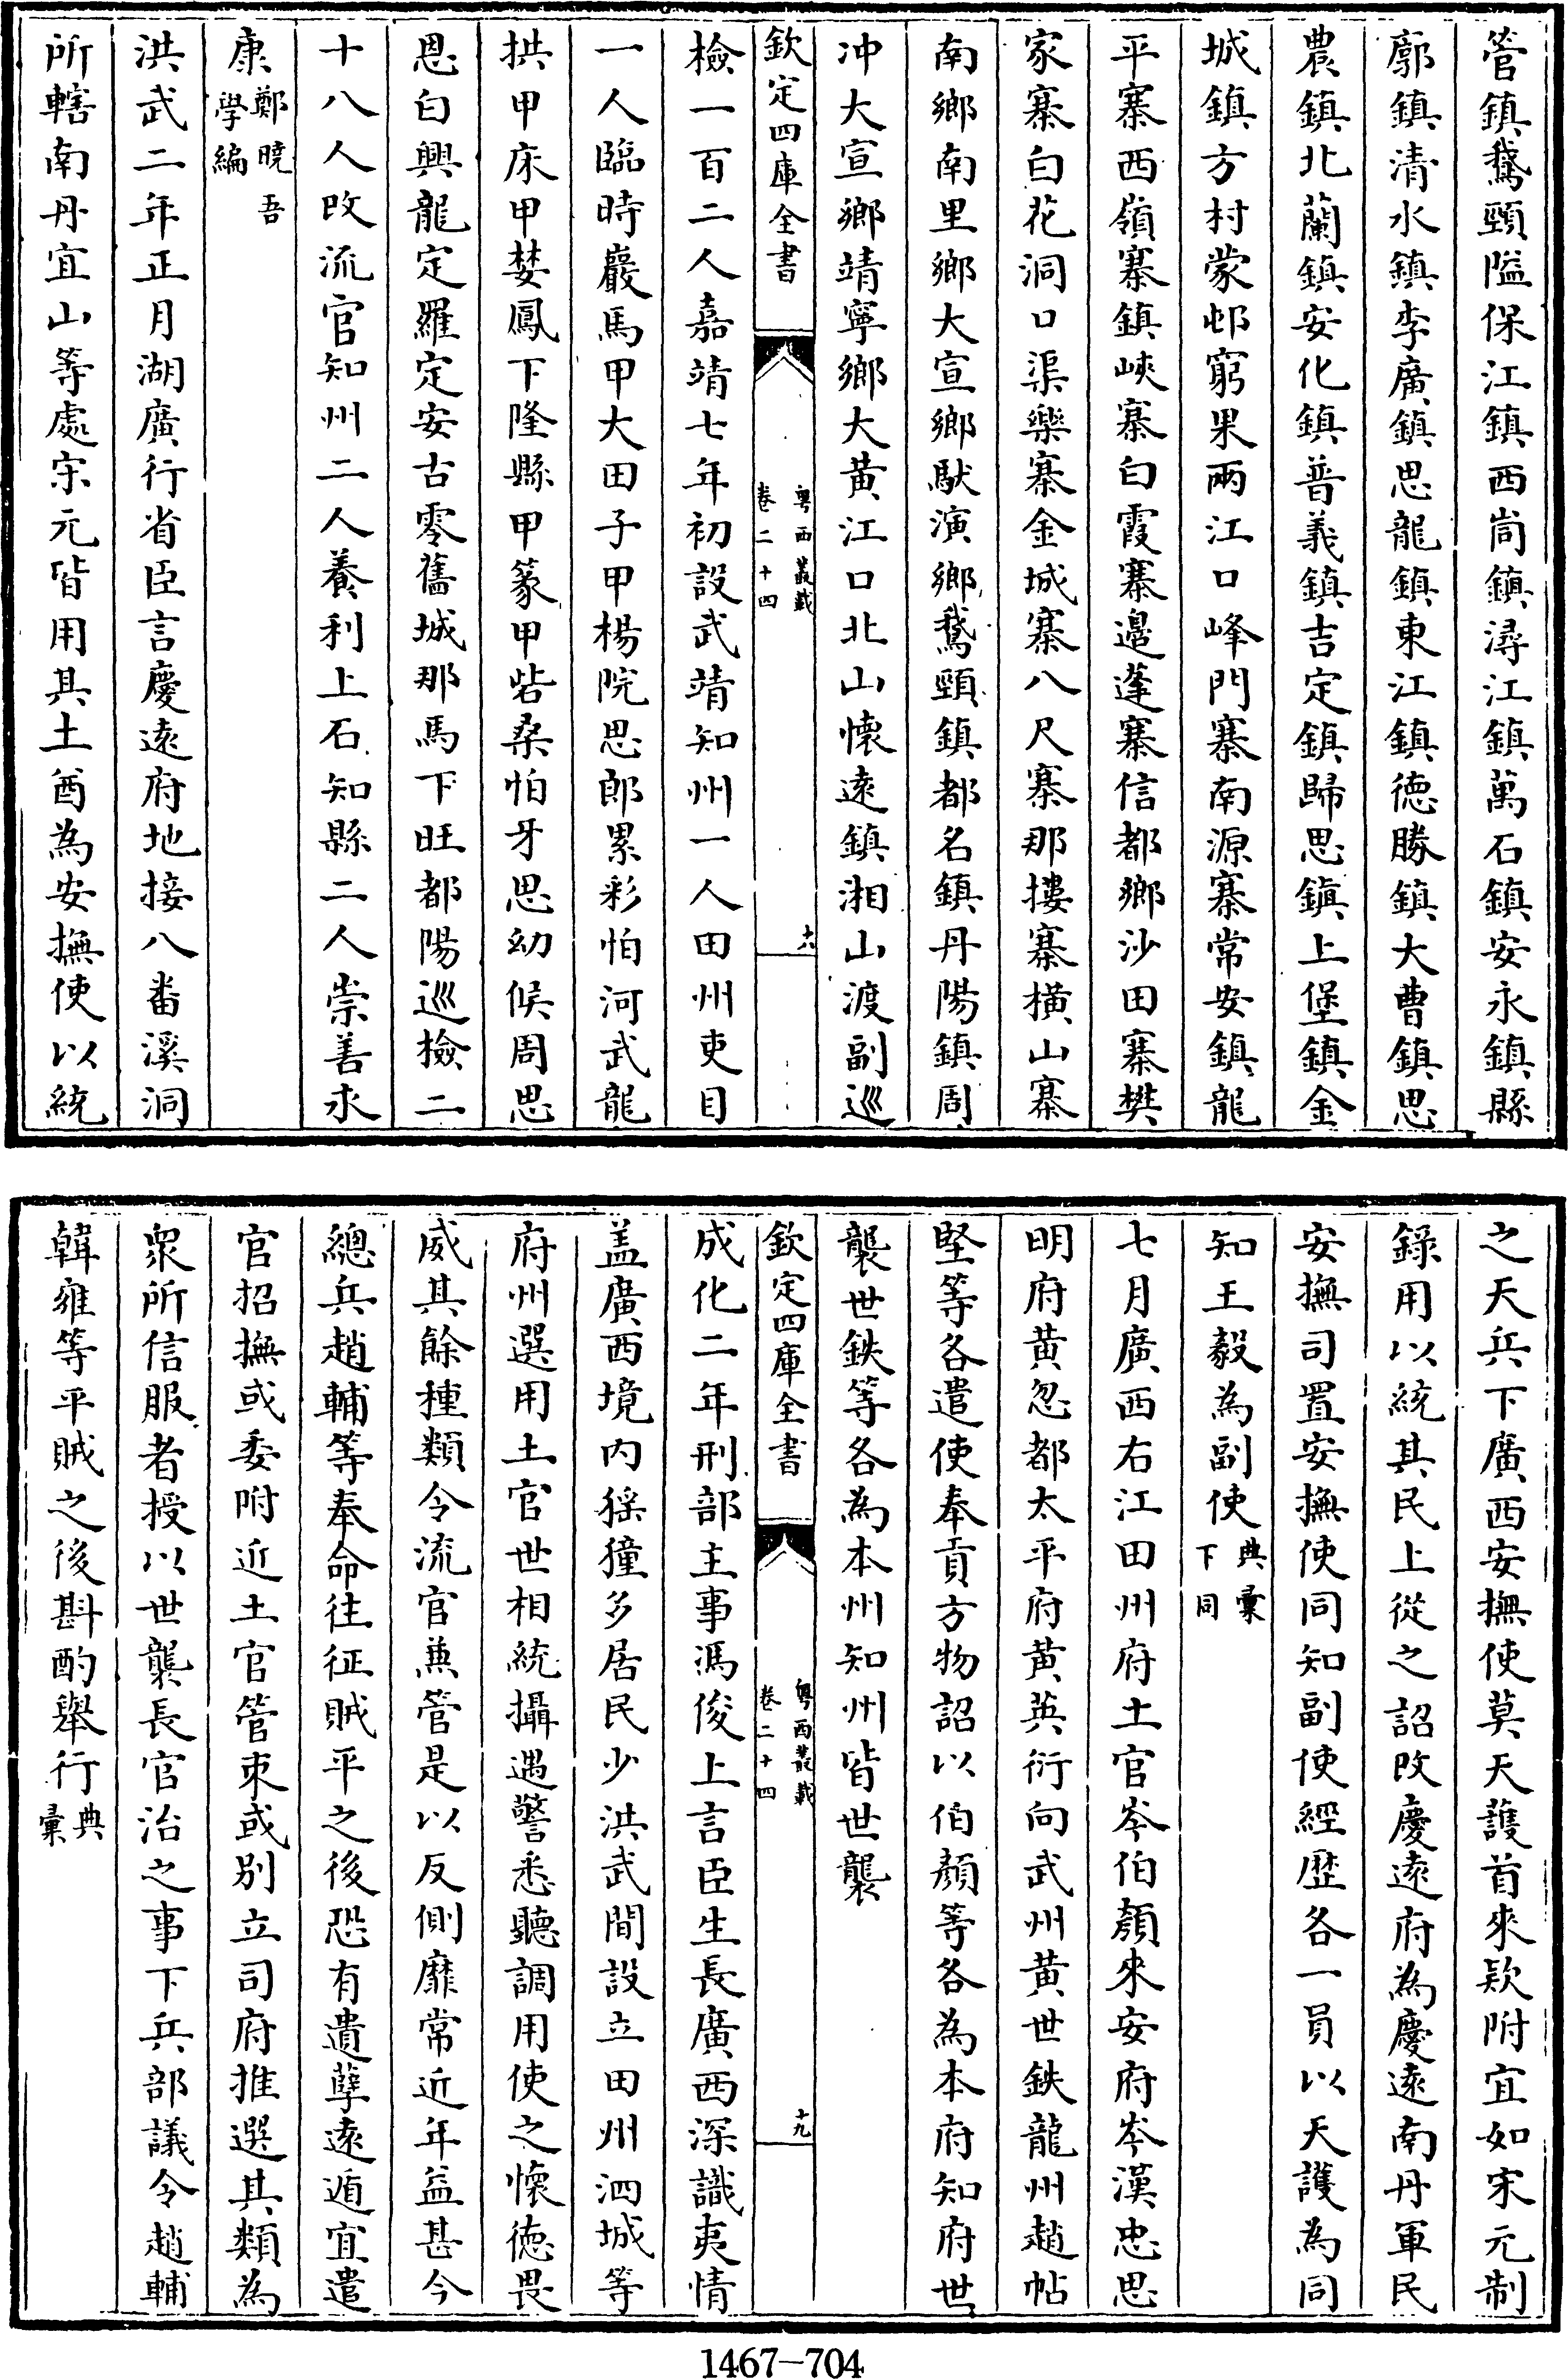 管鎮鵞頸隘保江鎮西尚鎮潯江鎮萬石鎮安永鎮縣
廓鎮清水鎮李廣鎮思龍鎮東江鎮徳勝鎮大曹鎮思
農鎮北蘭鎮安化鎮普義鎮吉定鎮歸思鎮上堡鎮金
城鎮方村蒙邨窮果兩江口峰門寨南源寨常安鎮龍
平寨西嶺寨鎮峽寨白霞寨邉蓬寨信都鄉沙田寨樊
家寨白花洞口渠樂寨金城寨八尺寨那摟寨橫山寨
南鄉南里鄉大宣鄉馱演鄉鵞頸鎮都名鎮丹陽鎮周
冲大宣鄉靖寧鄉大黄江口北山懷逺鎮湘山渡副巡
欽定四庫全書
粤西叢載
卷二十四
十八
檢一百二人嘉靖七年初設武靖知州一人田州吏目
一人臨時巖馬甲大田子甲楊院思郎累彩怕河武龍
拱甲床甲婪鳳下隆縣甲篆甲砦桑怕牙思幼候周思
恩白興龍定羅定安古零舊城那馬下旺都陽巡檢二
十八人改流官知州二人養利上石知縣二人崇善永
康鄭曉吾
學編
洪武二年正月湖廣行省臣言慶逺府地接八番溪洞
所轄南丹宜山等處宋元皆用其土酋為安撫使以統
之天兵下廣西安撫使莫天䕶首來欵附宜如宋元制
錄用以統其民上從之詔改慶逺府為慶逺南丹軍民
安撫司置安撫使同知副使經歴各一員以天護為同
知王毅為副使典彚
下同
七月廣西右江田州府土官岑伯顏來安府岑漢忠思
明府黄忽都太平府黄英衍向武州黄世鉄龍州趙帖
堅等各遣使奉貢方物詔以伯顏等各為本府知府世
襲世鉄等各為本州知州皆世襲
欽定四庫全書
粤西叢載
卷二十四
十九
成化二年刑部主事馮俊上言臣生長廣西深識夷情
盖廣西境内猺獞多居民少洪武間設立田州泗城等
府州選用土官世相統攝遇警悉聽調用使之懷徳畏
威其餘種類令流官兼管是以反側靡常近年益甚今
總兵趙輔等奉命往征賊平之後恐有遺孽逺遁宜遣
官招撫或委附近土官管束或别立司府推選其類為
衆所信服者授以世襲長官治之事下兵部議令趙輔
韓雍等平賊之後斟酌舉行典
彚
1467-704